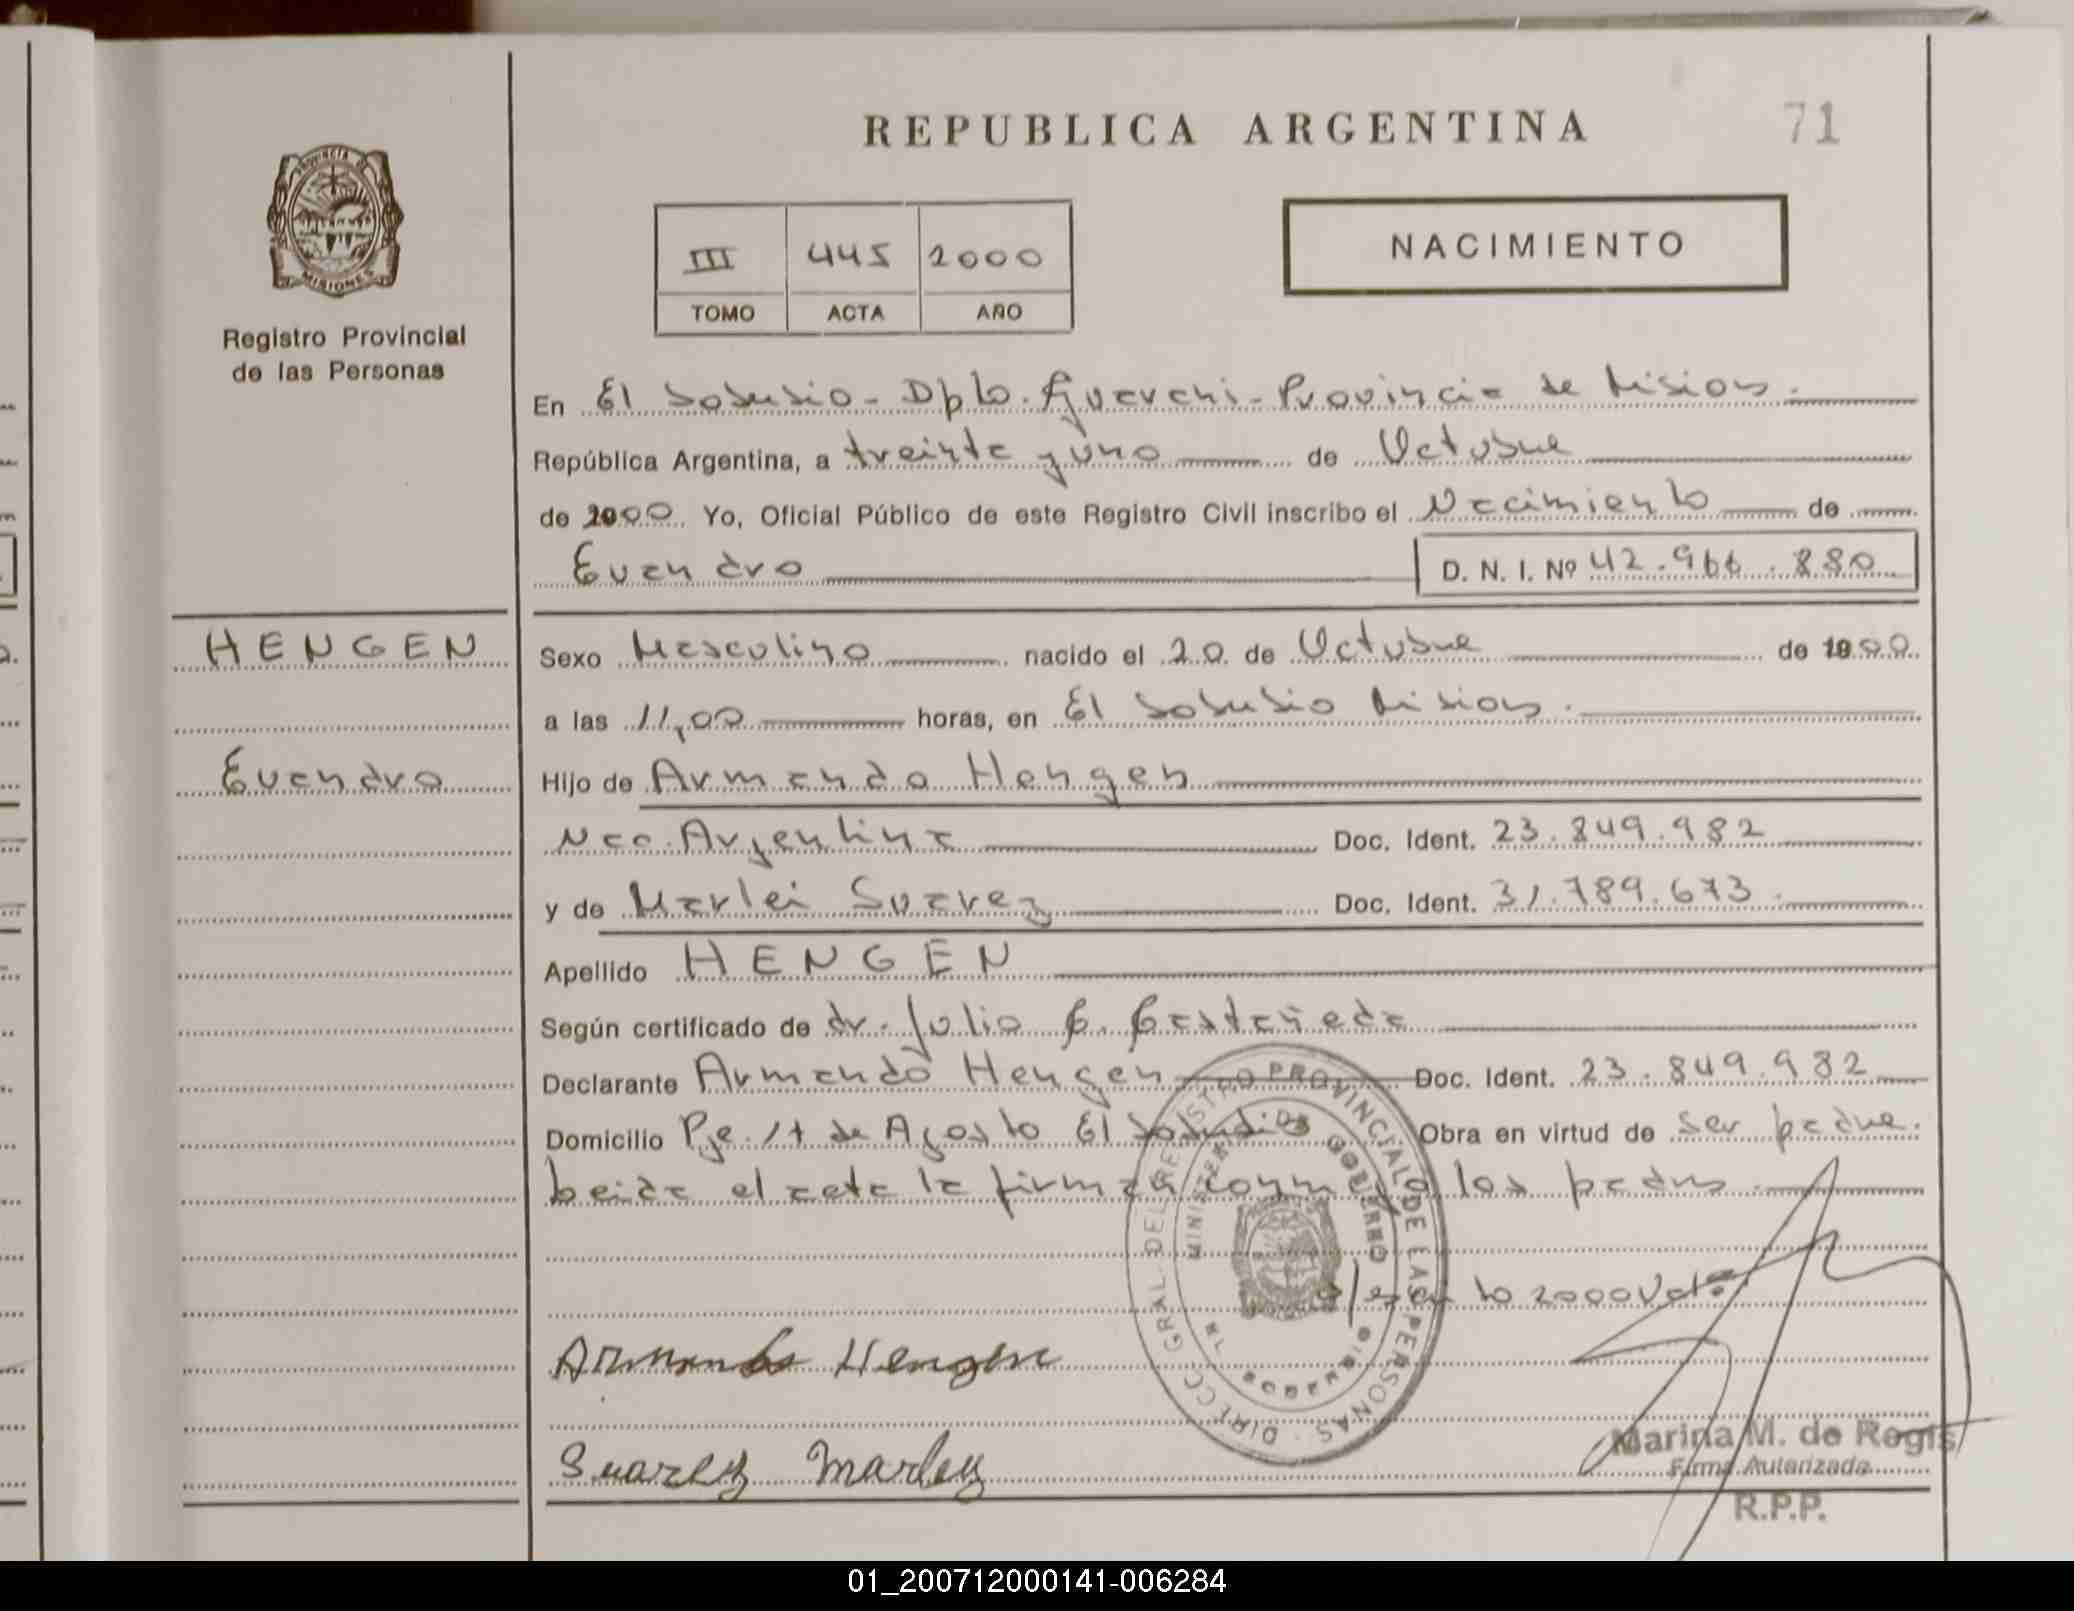 REPUBLICA ARGENTINA
71
PROVINCIA DE MISIONES
Registro Provincial
de las Personas
III 445 2000
TOMO ACTA AÑO
NACIMIENTO
En El Soberbio - Dpto. Guarani - Provincia de Misiones.
República Argentina, a treinta y uno de Octubre
de 2000 Yo, Oficial Público de este Registro Civil inscribo el Nacimiento de
Evandro D. N. I. Nº 42.966.880
HENGEN
Sexo Masculino nacido el 20 de Octubre de 2000.
a las 11,00 horas, en El Soberbio Misiones.
Evandro
Hijo de Armando Hengen
Nac. Argentina Doc. Ident. 23.849.982
y de Marlei Suarez Doc. Ident. 31.789.673.
Apellido HENGEN
Según certificado de dr. Julio C. Castañeda
Declarante Armando Hengen Doc. Ident. 23.849.982
Domicilio Pje. 17 de Agosto El Soberbio Obra en virtud de ser padre.
leida el acta la firman conmigo los padres.
2000 Vale
DIRECC. GRAL. DEL REGISTRO PROVINCIAL DE LAS PERSONAS
MINISTERIO DE GOBIERNO
Armando Hengen
Suarez Marley
Marina M. de Regis
Firma Autorizada
R.P.P.
01_200712000141-006284